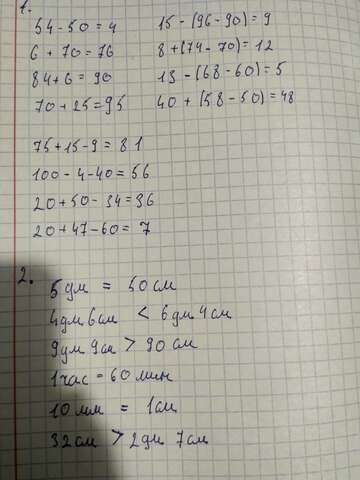 1.
54 - 50 = 4
6 + 70 = 76
84 + 6 = 90
70 + 25 = 95
15 - (96 - 90) = 9
8 + (74 - 70) = 12
13 - (68 - 60) = 5
40 + (58 - 50) = 48
75 + 15 - 9 = 81
100 - 4 - 40 = 56
20 + 50 - 34 = 36
20 + 47 - 60 = 7
2.
5 дм = 50 см
4 дм 6 см < 6 дм 4 см
9 дм 9 см > 90 см
1 час = 60 мин
10 мм = 1 см
32 см > 2 дм 7 см